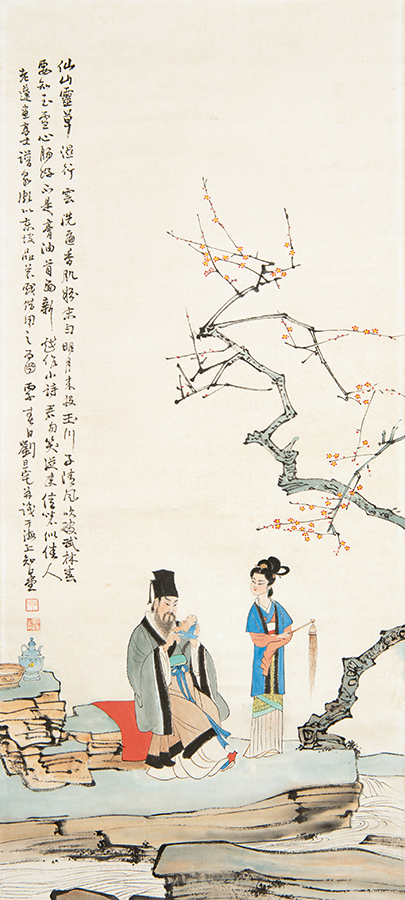 仙山靈草溼行雲洗遍香肌粉未勻明月來投玉川子清風吹破武林春
要知玉雪心腸好不是膏油首面新戲作小詩君勿笑從來佳茗似佳人
老蓮畫高士以東坡品茗戲借用之春日劉旦宅并識于海上